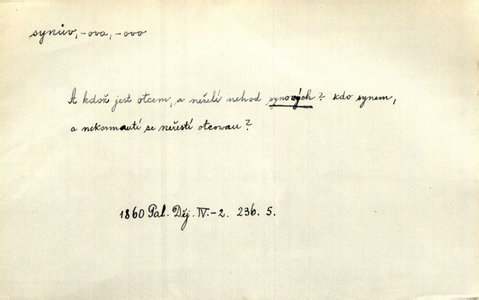 synův, -ova, -ovo
A kdož jest otcem, a neželí nehod synových? kdo synem,
a nekormoutí se neřestí otcovau?
1860 Pal. Děj. IV.-2. 236. 5.